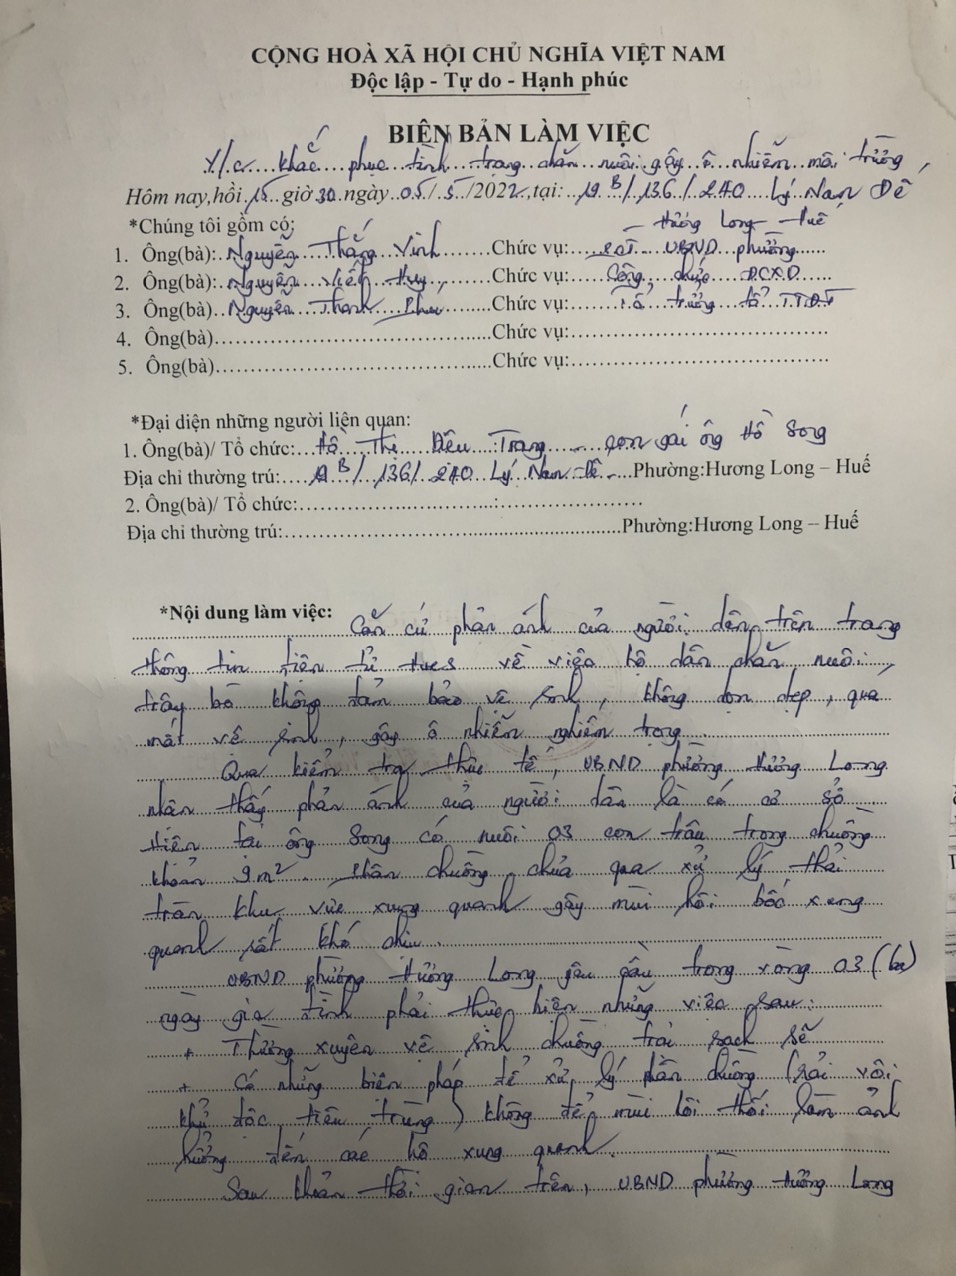 CỘNG HOÀ XÃ HỘI CHỦ NGHĨA VIỆT NAM
Độc lập - Tự do - Hạnh phúc
BIÊN BẢN LÀM VIỆC
Y/c khắc phục tình trạng chăn nuôi gây ô nhiễm môi trường
Hôm nay,hồi 15 giờ 30 ngày 05/5/2022, tại: 19B/136/240 Lý Nam Đế
- Hương Long - Huế
*Chúng tôi gồm có:
1. Ông(bà): Nguyễn Thắng Vinh Chức vụ: UBND phường
2. Ông(bà) Nguyễn Viết Huy Chức vụ: Công chức ĐCXD
3. Ông(bà) Nguyễn Thanh Chức vụ: Tổ trưởng tổ
4. Ông(bà) Chức vụ:
5. Ông(bà) Chức vụ:
*Đại diện những người liên quan:
1. Ông(bà)/ Tổ chức: Hồ Thị Trang con gái ông Hồ Song
Địa chỉ thường trú: 19B/136/240 Lý Nam Đế Phường:Hương Long – Huế
2. Ông(bà)/ Tổ chức:
Địa chỉ thường trú: Phường:Hương Long – Huế
*Nội dung làm việc: Căn cứ phản ánh của người dân trên trang
thông tin điện tử HueS về việc hộ dân chăn nuôi
trâu bò không đảm bảo vệ sinh, không dọn dẹp, quá
mất vệ sinh, gây ô nhiễm nghiêm trọng.
Qua kiểm tra thực tế, UBND phường Hương Long
nhận thấy phản ánh của người dân là có cơ sở
Hiện tại ông Song có nuôi 03 con trâu trong chuồng
khoản 9m². Phân chuồng chưa qua xử lý thải
tràn khu vực xung quanh gây mùi hôi bốc xung
quanh rất khó chịu.
UBND phường Hương Long yêu cầu trong vòng 03 (ba)
ngày gia đình phải thực hiện những việc sau:
+ Thường xuyên vệ sinh chuồng trại sạch sẽ
+ Có những biện pháp để xử lý phân chuồng (rải vôi
khử độc, tiêu trùng) không để mùi hôi thối làm ảnh
hưởng đến các hộ xung quanh.
Sau khoản thời gian trên, UBND phường Hương Long